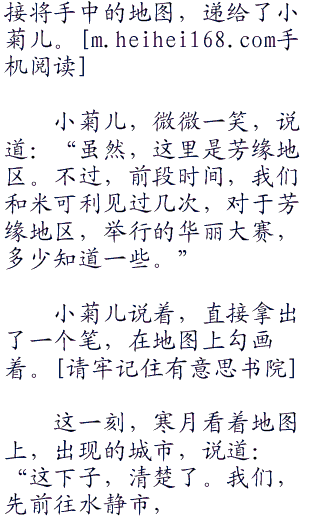 接将手中的地图，递给了小
菊儿。[m.heihei168.com手
机阅读]
小菊儿，微微一笑，说
道：“虽然，这里是芳缘地
区。不过，前段时间，我们
和米可利见过几次，对于芳
缘地区，举行的华丽大赛，
多少知道一些。”
小菊儿说着，直接拿出
了一个笔，在地图上勾画
着。[请牢记住有意思书院]
这一刻，寒月看着地图
上，出现的城市，说道：
“这下子，清楚了。我们，
先前往水静市，